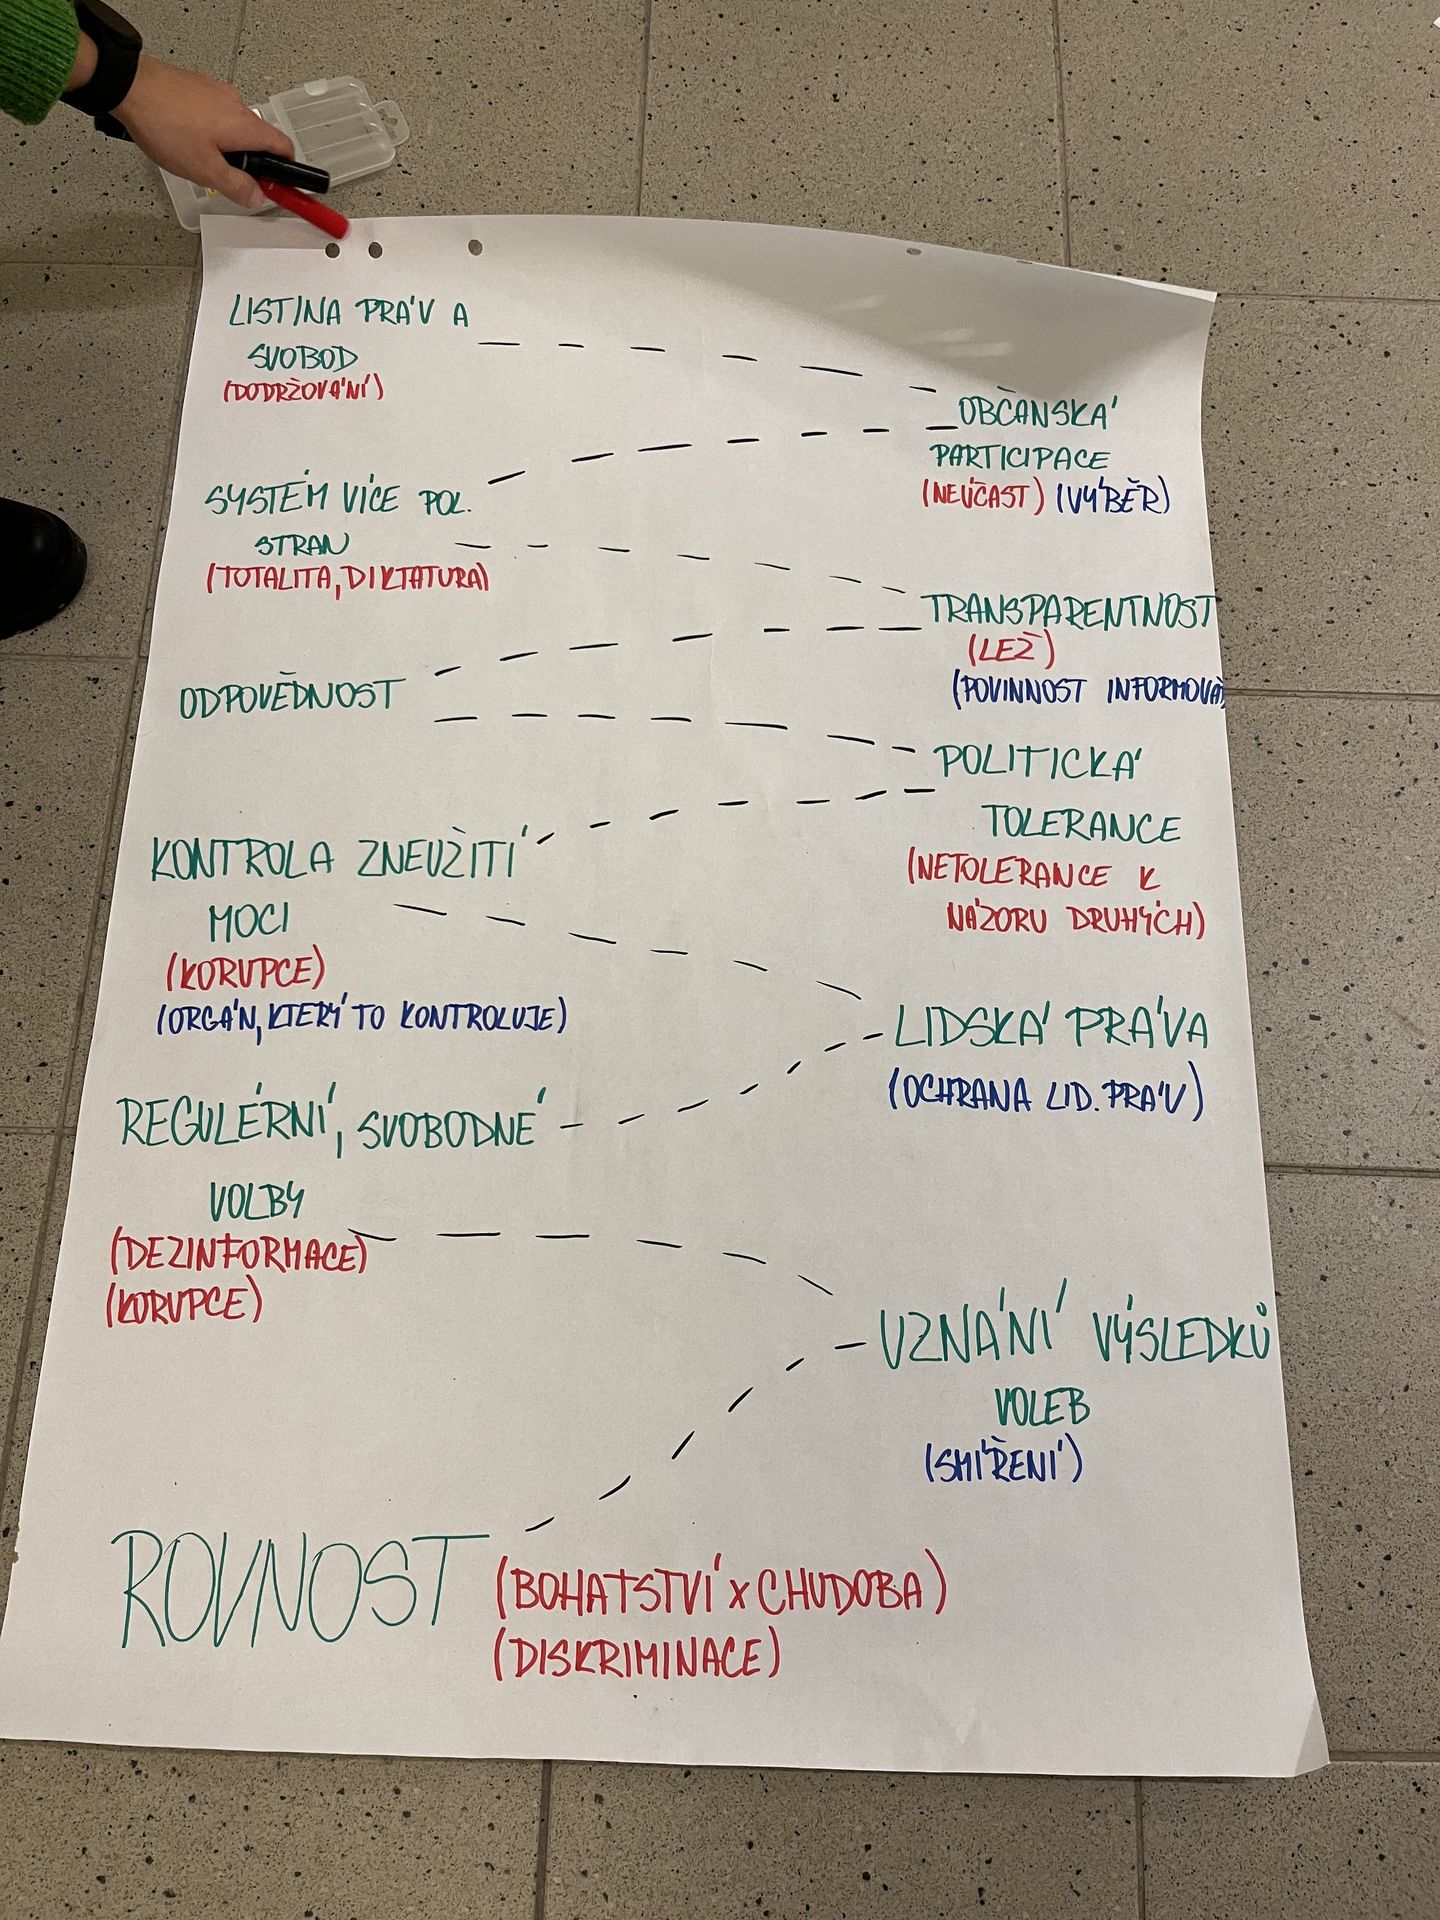 LISTINA PRÁV A
SVOBOD
(DODRŽOVÁNÍ)
OBČANSKÁ
PARTICIPACE
(NEÚČAST) (VÝBĚR)
SYSTÉM VÍCE POL.
STRAN
(TOTALITA, DIKTATURA)
TRANSPARENTNOST
(LEŽ)
(POVINNOST INFORMOVAT)
ODPOVĚDNOST
POLITICKÁ
TOLERANCE
(NETOLERANCE K
NÁZORU DRUHÝCH)
KONTROLA ZNEUŽITÍ
MOCI
(KORUPCE)
(ORGÁN, KTERÝ TO KONTROLUJE)
LIDSKÁ PRÁVA
(OCHRANA LID. PRÁV)
REGULÉRNÍ, SVOBODNÉ
VOLBY
(DEZINFORMACE)
(KORUPCE)
UZNÁNÍ VÝSLEDKŮ
VOLEB
(SMÍŘENÍ)
ROVNOST (BOHATSTVÍ x CHUDOBA)
(DISKRIMINACE)